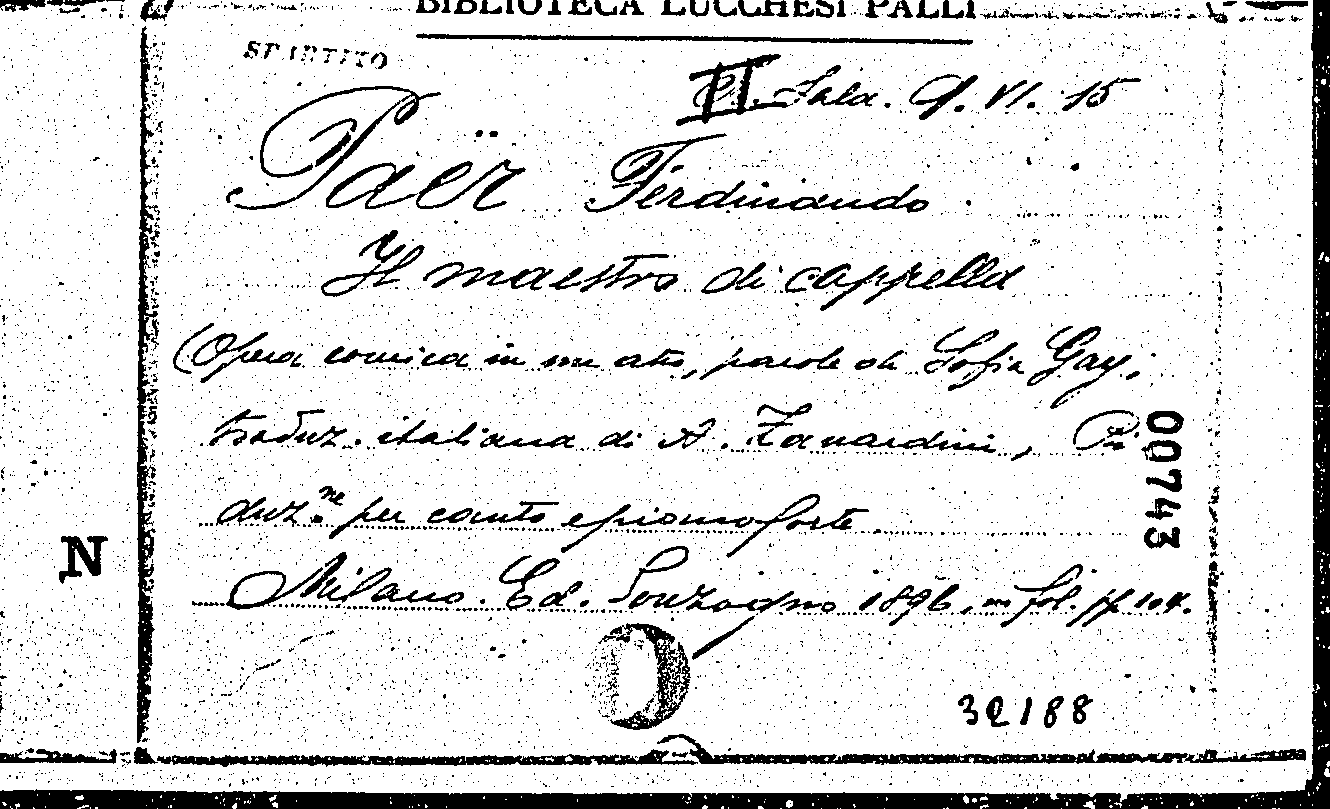 BIBLIOTECA LUCCHESI PALLI
SPARTITO
II. Sala. VI. 15
Paër Ferdinando
Il maestro di cappella
(Opera comica in un atto, parole di Sofia Gay;
traduz. italiana di A. Zanardini, Ri
duz.ne per canto e pianoforte.
Milano. Ed. Sonzogno 1896, in fol. pp. 104.
007743
N
32188